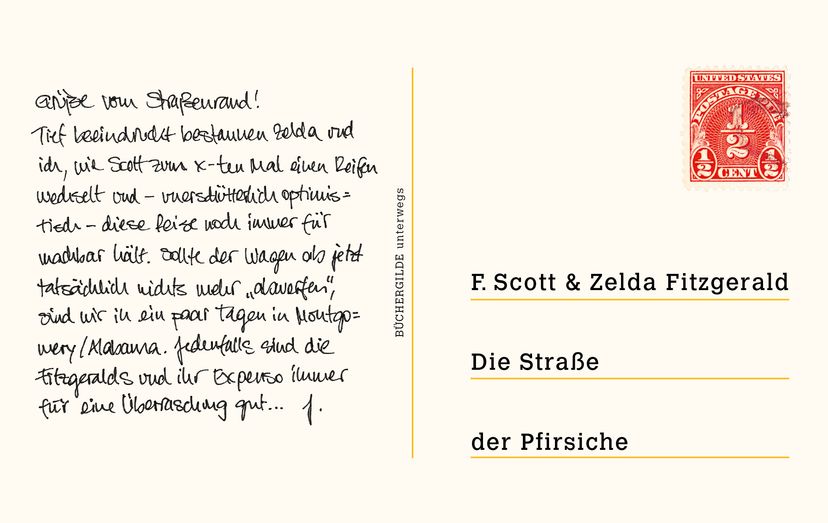 Grüße vom Straßenrand!
Tief beeindruckt bestaunen Zelda und
ich, wie Scott zum x-ten Mal einen Reifen
wechselt und – unerschütterlich optimis=
tisch – diese Reise noch immer für
machbar hält. Sollte der Wagen ab jetzt
tatsächlich nichts mehr „abwerfen“,
sind wir in ein paar Tagen in Montgo=
mery/Alabama. Jedenfalls sind die
Fitzgeralds und ihr Expenso immer
für eine Überraschung gut... J.
BÜCHERGILDE unterwegs
UNITED STATES
POSTAGE DUE
1/2
1/2
1/2
CENT
F. Scott & Zelda Fitzgerald
Die Straße
der Pfirsiche